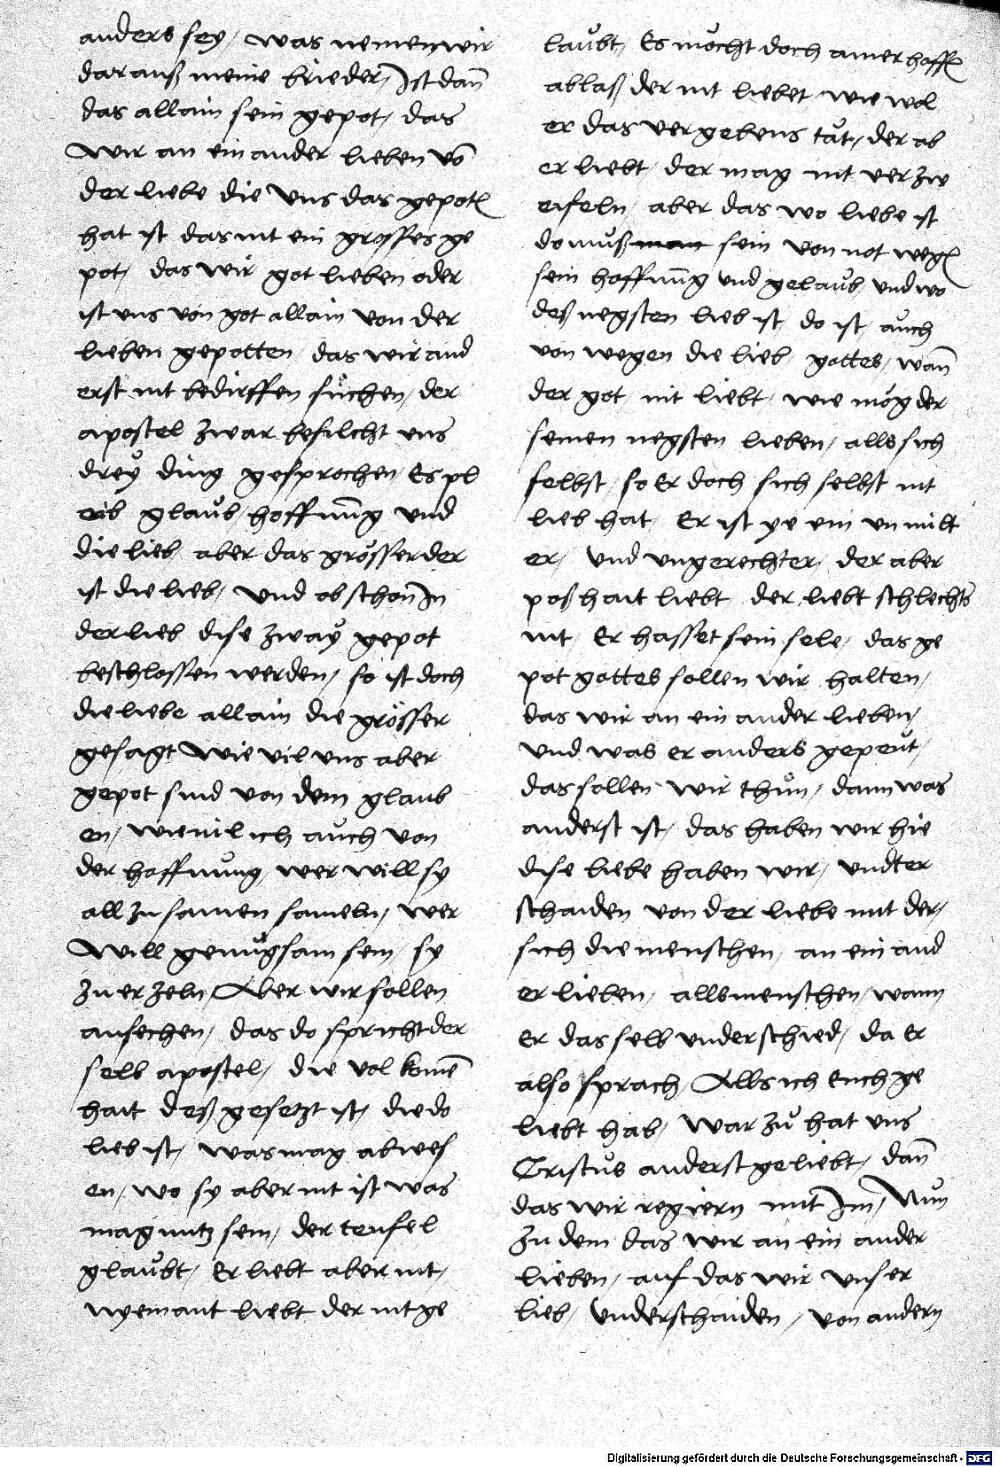 anders sey, was nemen wir
darauß meine brieder, Ist dañ
das allain sein gepot, das
Wir an ein ander lieben võ
der liebe die uns das gepot
hat ist das nit ein grosses ge
pot, das wir got lieben oder
ist uns von got allain von der
lieben gepotten, das wir and
erst nit bedirffen sůchen, der
apostel zwar befilcht uns
drey ding gesprochen, Es pl
eib glaub hoffnũg und
die lieb, aber das grösser der
ist die lieb, und ob schon In
der lieb dise zway gepot
beschlossen werden, so ist doch
die liebe allain die grösser
gesagt Wie vil uns aber
gepot sind von dem glaub
en, wievil ich auch von
der hoffnung, wer will sy
all zu samen sameln, wer
Will genugsam sein, sy
zu erzeln, Aber wir sollen
ansechen, das do spricht der
selb apostel, die vol komẽ
hait deß gesetzt ist, die do
lieb ist, was mag abwes
en, wo sy aber nit ist was
mag nutz sein, der teufel
glaubt, Er liebt aber nit,
nyemant liebt der nit ge
laubt, Es mocht doch ainer hoff
ablaß der nit liebet wie wol
er das vergebens tät, der ab
er liebt, der mag nit verzw
eifeln, aber das wo liebe ist
do muß sein von not weg
sein hoffnũg und gelaub, und wo
deß negsten lieb ist do ist auch
von wegen die lieb gottes, wañ
der got nit liebt, wie mög der
seinen negsten lieben, alls sich
selbst, so Er doch sich selbst nit
lieb hat, Er ist ye ein un milt
er, und ungerechter, der aber
poßhait liebt der liebt schlechts
nit, Er hasset sein sele, das ge
pot gottes sollen wir halten,
das wir an ein ander lieben,
und was er anders gepeut,
das sollen wir thůn, dann was
anderst ist, das haben wir hie
dise liebe haben wir, undter
schaiden von der liebe mit der,
sich die menschen, an ein and
er lieben, alls menschen, wann
Er das selb underschied, da Er
also sprach, Alls ich Euch ge
liebt hab, war zů hat uns
Cristus anderst geliebt, dañ
das wir regiern mit Im, Nun
zu dem das wir an ein ander
lieben, auf das wir unser
lieb, underschaiden, von andern
Digitalisierung gefördert durch die Deutsche Forschungsgemeinschaft - DFG